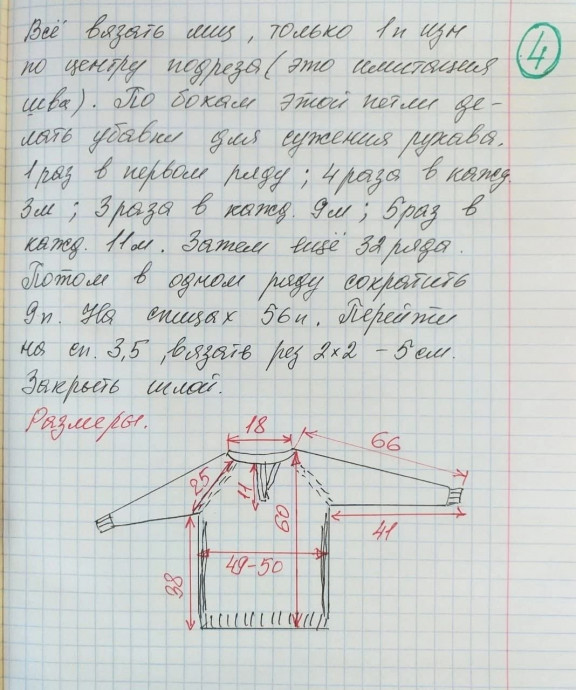 4
Всё вязать лиц, только 1п изн
по центру подреза (это имитация
шва). По бокам этой петли де-
лать убавки для сужения рукава.
1 раз в первом ряду; 4 раза в кажд.
3м; 3 раза в кажд. 9м; 5 раз в
кажд. 11м. Затем ещё 32 ряда.
Потом в одном ряду сократить
9п. На спицах 56п. Перейти
на сп. 3,5, вязать рез 2х2 - 5см.
Закрыть иглой.
Размеры.
18
66
25
11
60
41
49-50
38